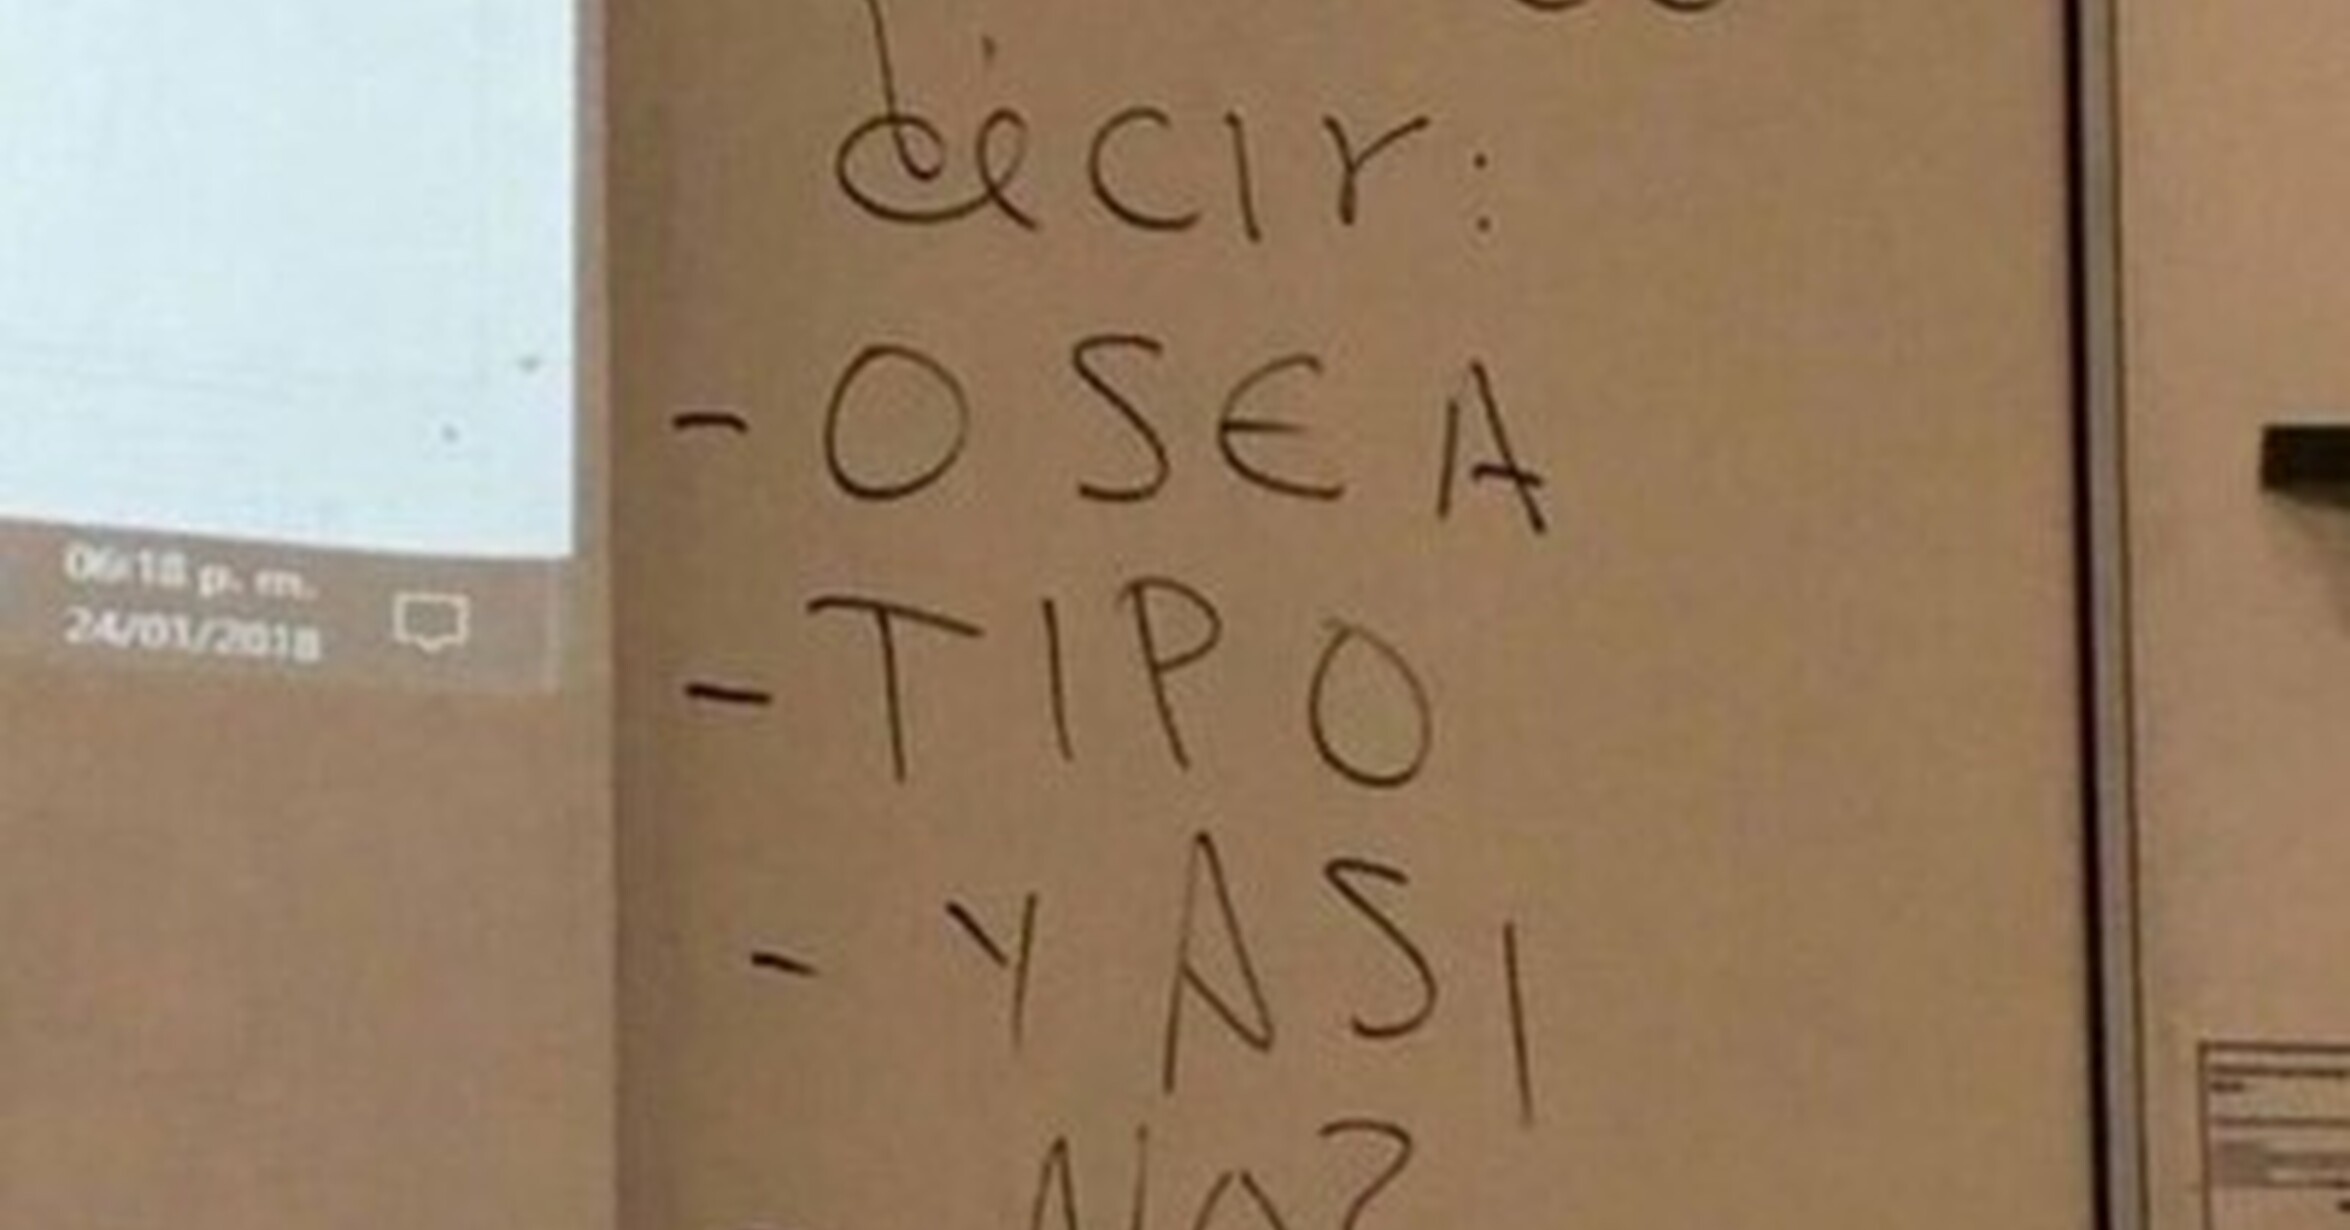 decir:
- O SEA
- TIPO
- Y ASI
NO?
06:18 p. m.
24/01/2018